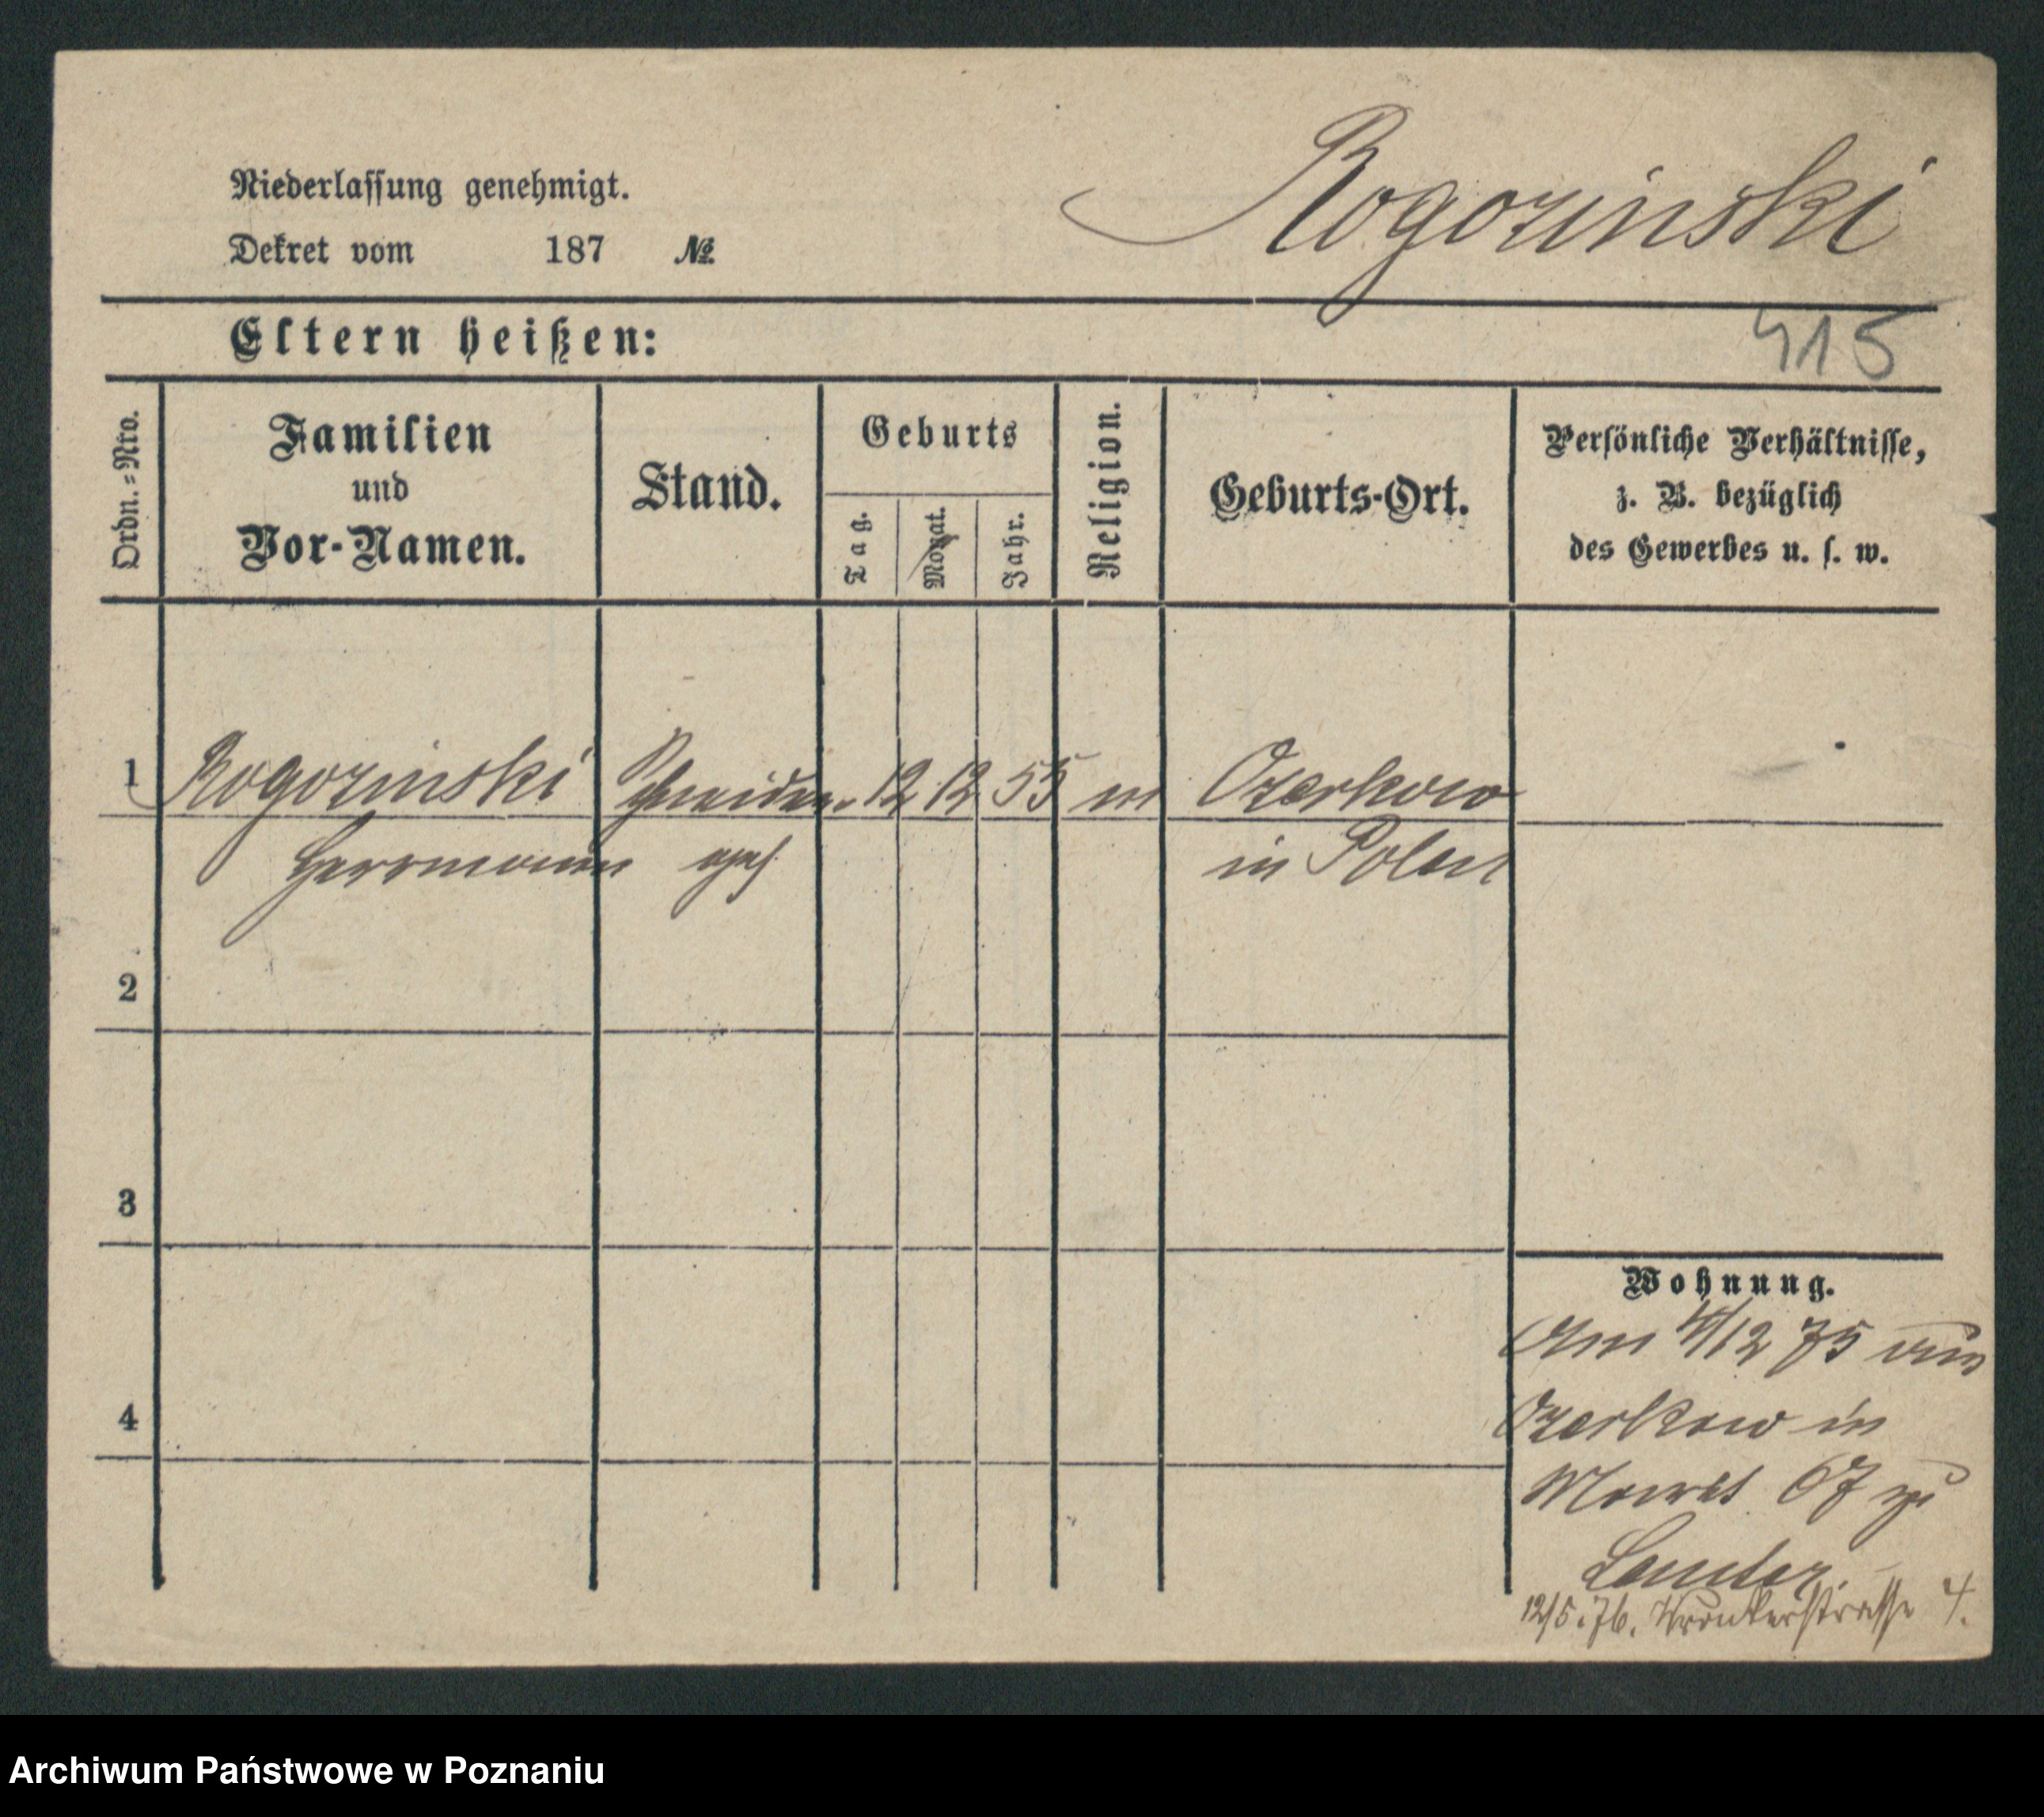 Niederlassung genehmigt.
Rogozinski
Dekret vom 187 №
Eltern heißen:
415
Ordn.-Nro.
Familien
und
Vor-Namen.
Stand.
Geburts
Tag.
Monat.
Jahr.
Religion.
Geburts-Ort.
Persönliche Verhältnisse,
z. B. bezüglich
des Gewerbes u. s. w.
1 Rogozinski Schneider- 12 12 55 m Ozorkow
Herrmann ges in Polen
2
3
4
Wohnung.
Am 4/12 75 aus
Ozorkow in
Markt 67 zu
12/5.76. Wronkerstrasse 4.
Archiwum Państwowe w Poznaniu